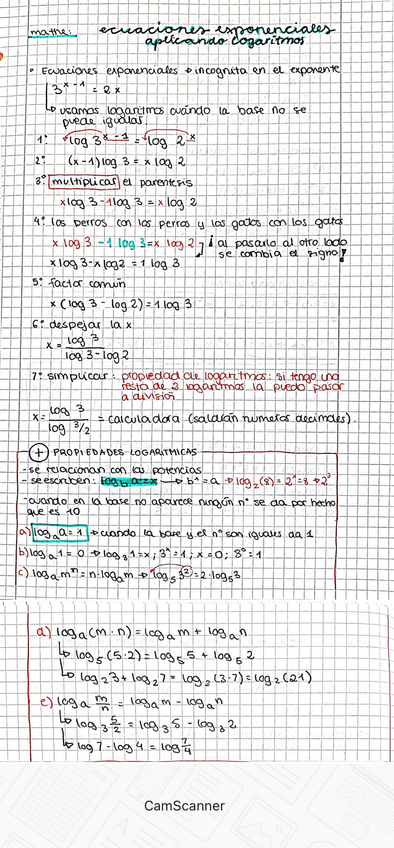 mathe: ecuaciones exponenciales
aplicando logaritmos
• Ecuaciones exponenciales → incognita en el exponente
3^(x-1) = 2^x
↳ usamos logaritmos cuando la base no se
puede igualar.
1º log 3^(x-1) = log 2^x
2º (x-1) log 3 = x log 2
3º multiplicar el parentesis
x log 3 - 1 log 3 = x log 2
4º los perros con los perros y los gatos con los gatos
x log 3 - 1 log 3 = x log 2 ¡al pasarlo al otro lado
se cambia el signo!
x log 3 - x log 2 = 1 log 3
5º factor común
x (log 3 - log 2) = 1 log 3
6º despejar la x
x = log 3 / (log 3 - log 2)
7º simplicar: propiedad de logaritmos: si tengo una
resta de 2 logaritmos la puedo pasar
a división
x = log 3 / log 3/2 = calculadora (saldrán numeros decimales).
+ PROPIEDADES LOGARITMICAS
- se relacionan con las potencias
- se escriben: log_b a = x → b^x = a → log_2 (8) = 2^x = 8 → 2^3
- cuando en la base no aparece ningún nº se da por hecho
que es 10
a) log_a a = 1 → cuando la base y el nº son iguales da 1
b) log_a 1 = 0 → log_3 1 = x; 3^x = 1; x = 0; 3^0 = 1
c) log_a m^n = n · log_a m → log_5 3^2 = 2 · log_5 3
d) log_a (m · n) = log_a m + log_a n
↳ log_5 (5 · 2) = log_5 5 + log_5 2
↳ log_2 3 + log_2 7 = log_2 (3 · 7) = log_2 (21)
e) log_a m/n = log_a m - log_a n
↳ log_3 5/2 = log_3 5 - log_3 2
↳ log 7 - log 4 = log 7/4
CamScanner